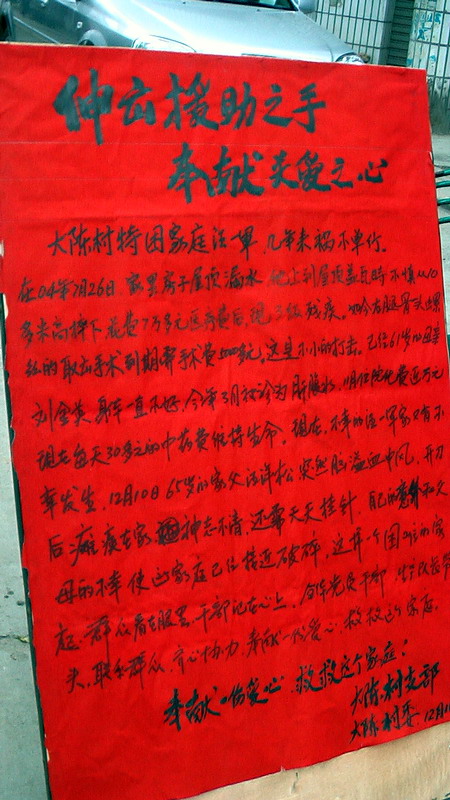 伸出援助之手
奉献关爱之心
大陈村特困家庭汪军,几年来祸不单行。
在04年7月26日,家里房子屋顶漏水,他上到屋顶盖瓦时不慎从10
多米高摔下花费7万多元医疗费后,现三级残疾。如今右腿骨头出黑
的取出手术到期需手术费5000多元。这是不小的打击。已经61岁的母亲
刘金英身体一直不好,今年3月被诊为肝腹水,1月住院花费近万元
现在每天30多元的中药费维持生命。现在,不幸的汪军家又有不
幸发生,12月10日65岁的家父汪详松突然脑溢血中风,开刀
后瘫痪在家神志不清,还需天天挂针,自己的意外和父
母的不幸使这家庭已经接近破碎,这样一个困难的家
庭,群众看在眼里,干部记在心上,全体党员干部
头,联系群众,齐心协力,奉献一份爱心,救救这个家庭。
奉献一份爱心 救救这个家庭!
大陈村支部
大陈村委 12月